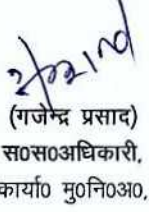 (गजेन्द्र प्रसाद)
स०स०अधिकारी,
कार्या० मु०नि०अ०,